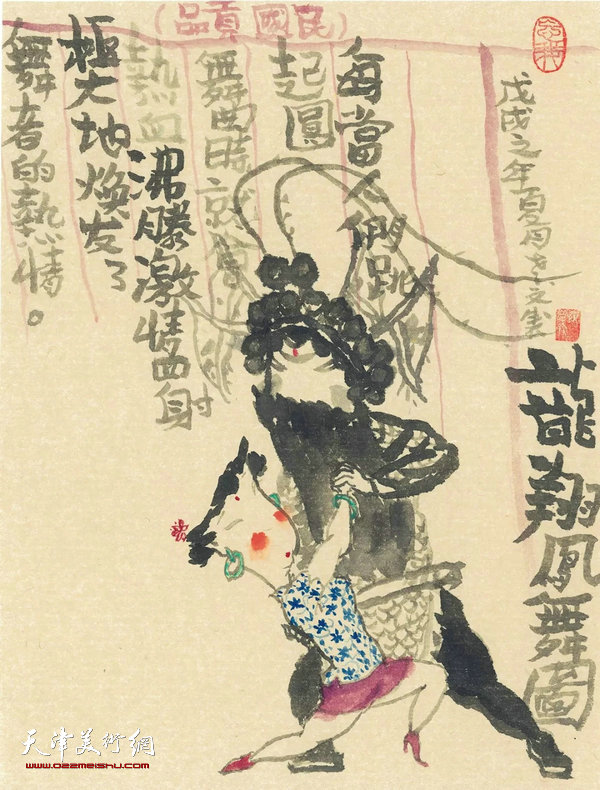 (民國貢品)
每當人們跳
起圓
舞曲時就會
熱血沸騰激情四射
極大地焕发了
舞者的熱情。
戊戌之年夏月
龍翔鳳舞圖
天津美術網
www.022meishu.com